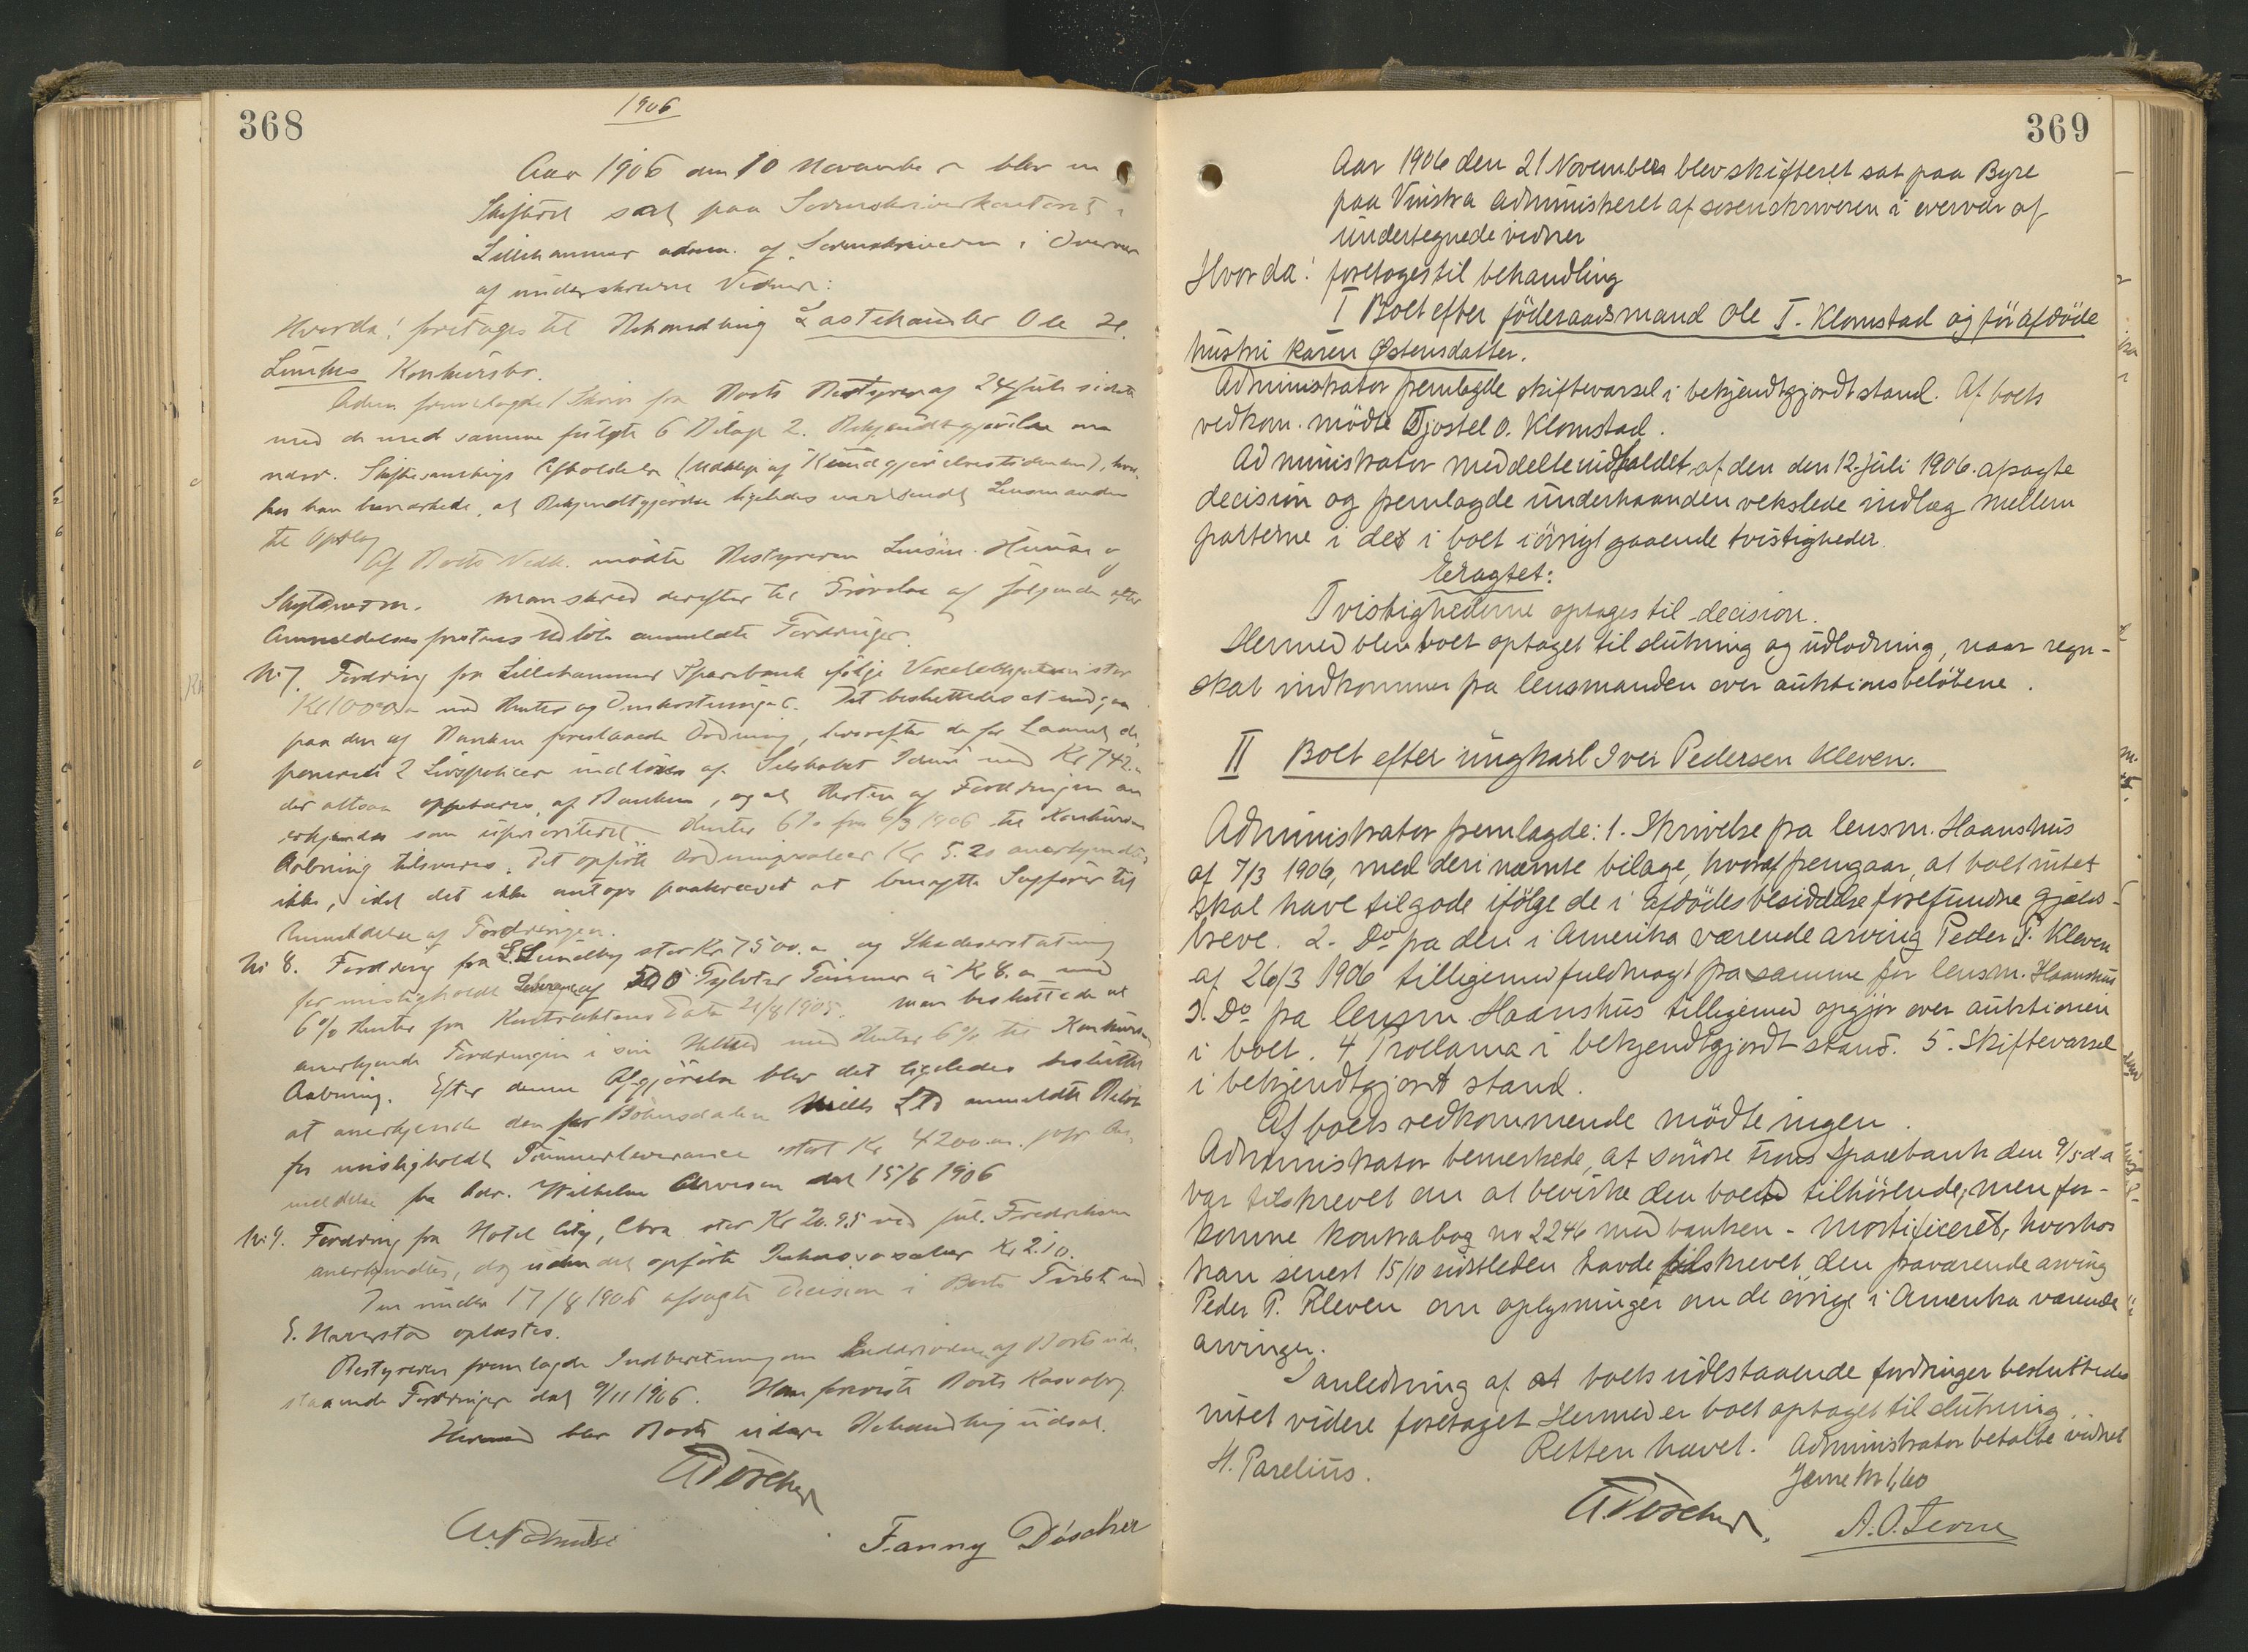 368
1906
Aar 1906 den 10 November blev en
Skifteret sat paa Sorenskriverkontoret i
Lillehammer adm. af Sorenskriveren i Overvær
af underskrevne Vidner:
Hvorda! foretoges til Behandling Lasthandler Ole H.
Lunkes Konkursbo.
Adm. fremlagde 1 Skriv fra Boets Bestyrer af 24 Juli sidste
med de med samme fulgte 6 Bilage 2. Bekjendtgjørelse om
nærv. Skiftesamlings Afholdelse (Udklip af Kundgjørelsestidenden), hvor-
hos han bemærkede, at Bekjendtgjørelse ligeledes var sendt Lensmanden
til Opslag
Af Boets Vedk. mødte Bestyreren Lensm. Hunse og
Skyldneren. Man skred derefter til Prøvelse af følgende efter
Anmeldelsesfristens Udløb anmeldte Fordringer.
No 7. Fordring fra Lillehammer Sparebank ifølge Vexelobligation stor
Kr 1000.00 med Renter og Omkostninger. Det besluttedes at indgaa
paa den af Banken foreslaaede Ordning, hvorefter de for Laanet de-
ponerede 2 Livspolicer indløses af Selskabet Idun med Kr 742.-
der altsaa oppebæres af Banken, og at Resten af Fordringen an
erkjendes som uprioriteret Renter 6% fra 6/3 1906 til Konkursens
Aabning tilsvares. Det opførte Ordningssalær Kr 5.20 anerkjendtes
ikke, idet det ikke antages paakrævet at benytte Sagfører til
Anmeldelse af Fordringen.
No 8. Fordring fra L. Lundby stor Kr 7500.00 og Skadeserstatning
for misligholdt Leverance af 500 Tylvter Tømmer à Kr 8.00 med
6% Renter fra Kontraktens Dato 21/8 1905. Man besluttede at
anerkjende Fordringen i sin Helhed med Renter 6% til Konkursens
Aabning. Efter denne Afgjørelse blev det ligeledes besluttet
at anerkjende den for Bøhnsdalen Mills Ltd anmeldte Beløb
for misligholdt Tømmerleverance stort Kr 4200.00. jvfr An-
meldelse fra Adv. Wilhelm Arnesen dat 15/6 1906
No 9. Fordring fra Hotel City, Chra stor Kr 20.95 ved Jul. Fredriksen
anerkjendtes, dog uden det opførte Inkassosalær Kr 2.10.
Den under 17/8 1906 afsagte Decision i Boets Tvist med
E. Haverstad oplæstes.
Bestyreren fremlagde Indberetning om Inddrivelse af Boets ude-
staaende Fordringer dat 9/11 1906. Han foreviste Boets Kassabog
Hermed blev Boets videre Behandling udsat.
Fanny Döscher
369
Aar 1906 den 21 November blev skifteret sat paa Byre
paa Vinstra administreret af sorenskriveren i overvær af
undertegnede vidner
Hvorda! foretoges til behandling
I Boet efter föderaadsmand Ole T. Klomstad og för afdöde
hustru Karen Østensdatter.
Administrator fremlagde skiftevarsel i bekjendtgjordt stand. Af boets
vedkom. mödte Tjostel O. Klomstad.
Administrator meddelte indholdet af den den 12. juli 1906. afsagte
decision og fremlagde underhaanden vekslede indlæg mellem
parterne i de i boet iövrigt gaaende tvistigheder.
Eragtet:
Tvistighederne optages til decision.
Hermed blev boet optaget til slutning og udlodning, naar regn-
skab indkommer fra lensmanden over auktionsbelöbene.
II Boet efter ungkarl Iver Pedersen Kleven.
Administrator fremlagde: 1. Skrivelse fra lensm. Haanshus
af 7/3 1906, med deri nævnte bilage, hvoraf fremgaar, at boet intet
skal have tilgode ifölge de i afdödes besiddelse forefundne gjælds-
breve. 2. Do fra den i Amerika værende arving Peder P. Kleven
af 26/3 1906 tilligemed fuldmagt fra samme for lensm. Haanshus
3. Do fra lensm. Haanshus tilligemed opgjör over auktionen
i boet. 4 Proclama i bekjendtgjordt stand. 5. Skiftevarsel
i bekjendtgjort stand.
Af boets vedkommende mödte ingen.
Administrator bemerkede, at söndre Frons Sparebank den 9/5 d.a
var tilskrevet om at bevirke den boet tilhörende, men for-
komne kontrabog no 2246 med banken - mortificeret, hvorhos
han senest 15/10 sidstleden havde tilskrevet den fraværende arving
Peder P. Kleven om oplysninger om de övrige i Amerika værende
arvinger.
I anledning af at boets udestaaende fordringer besluttedes
intet videre foretaget Hermed er boet optaget til slutning.
Retten hævet. Administrator betalte vidnet
H. Parelius.
Jerne kr 1,60